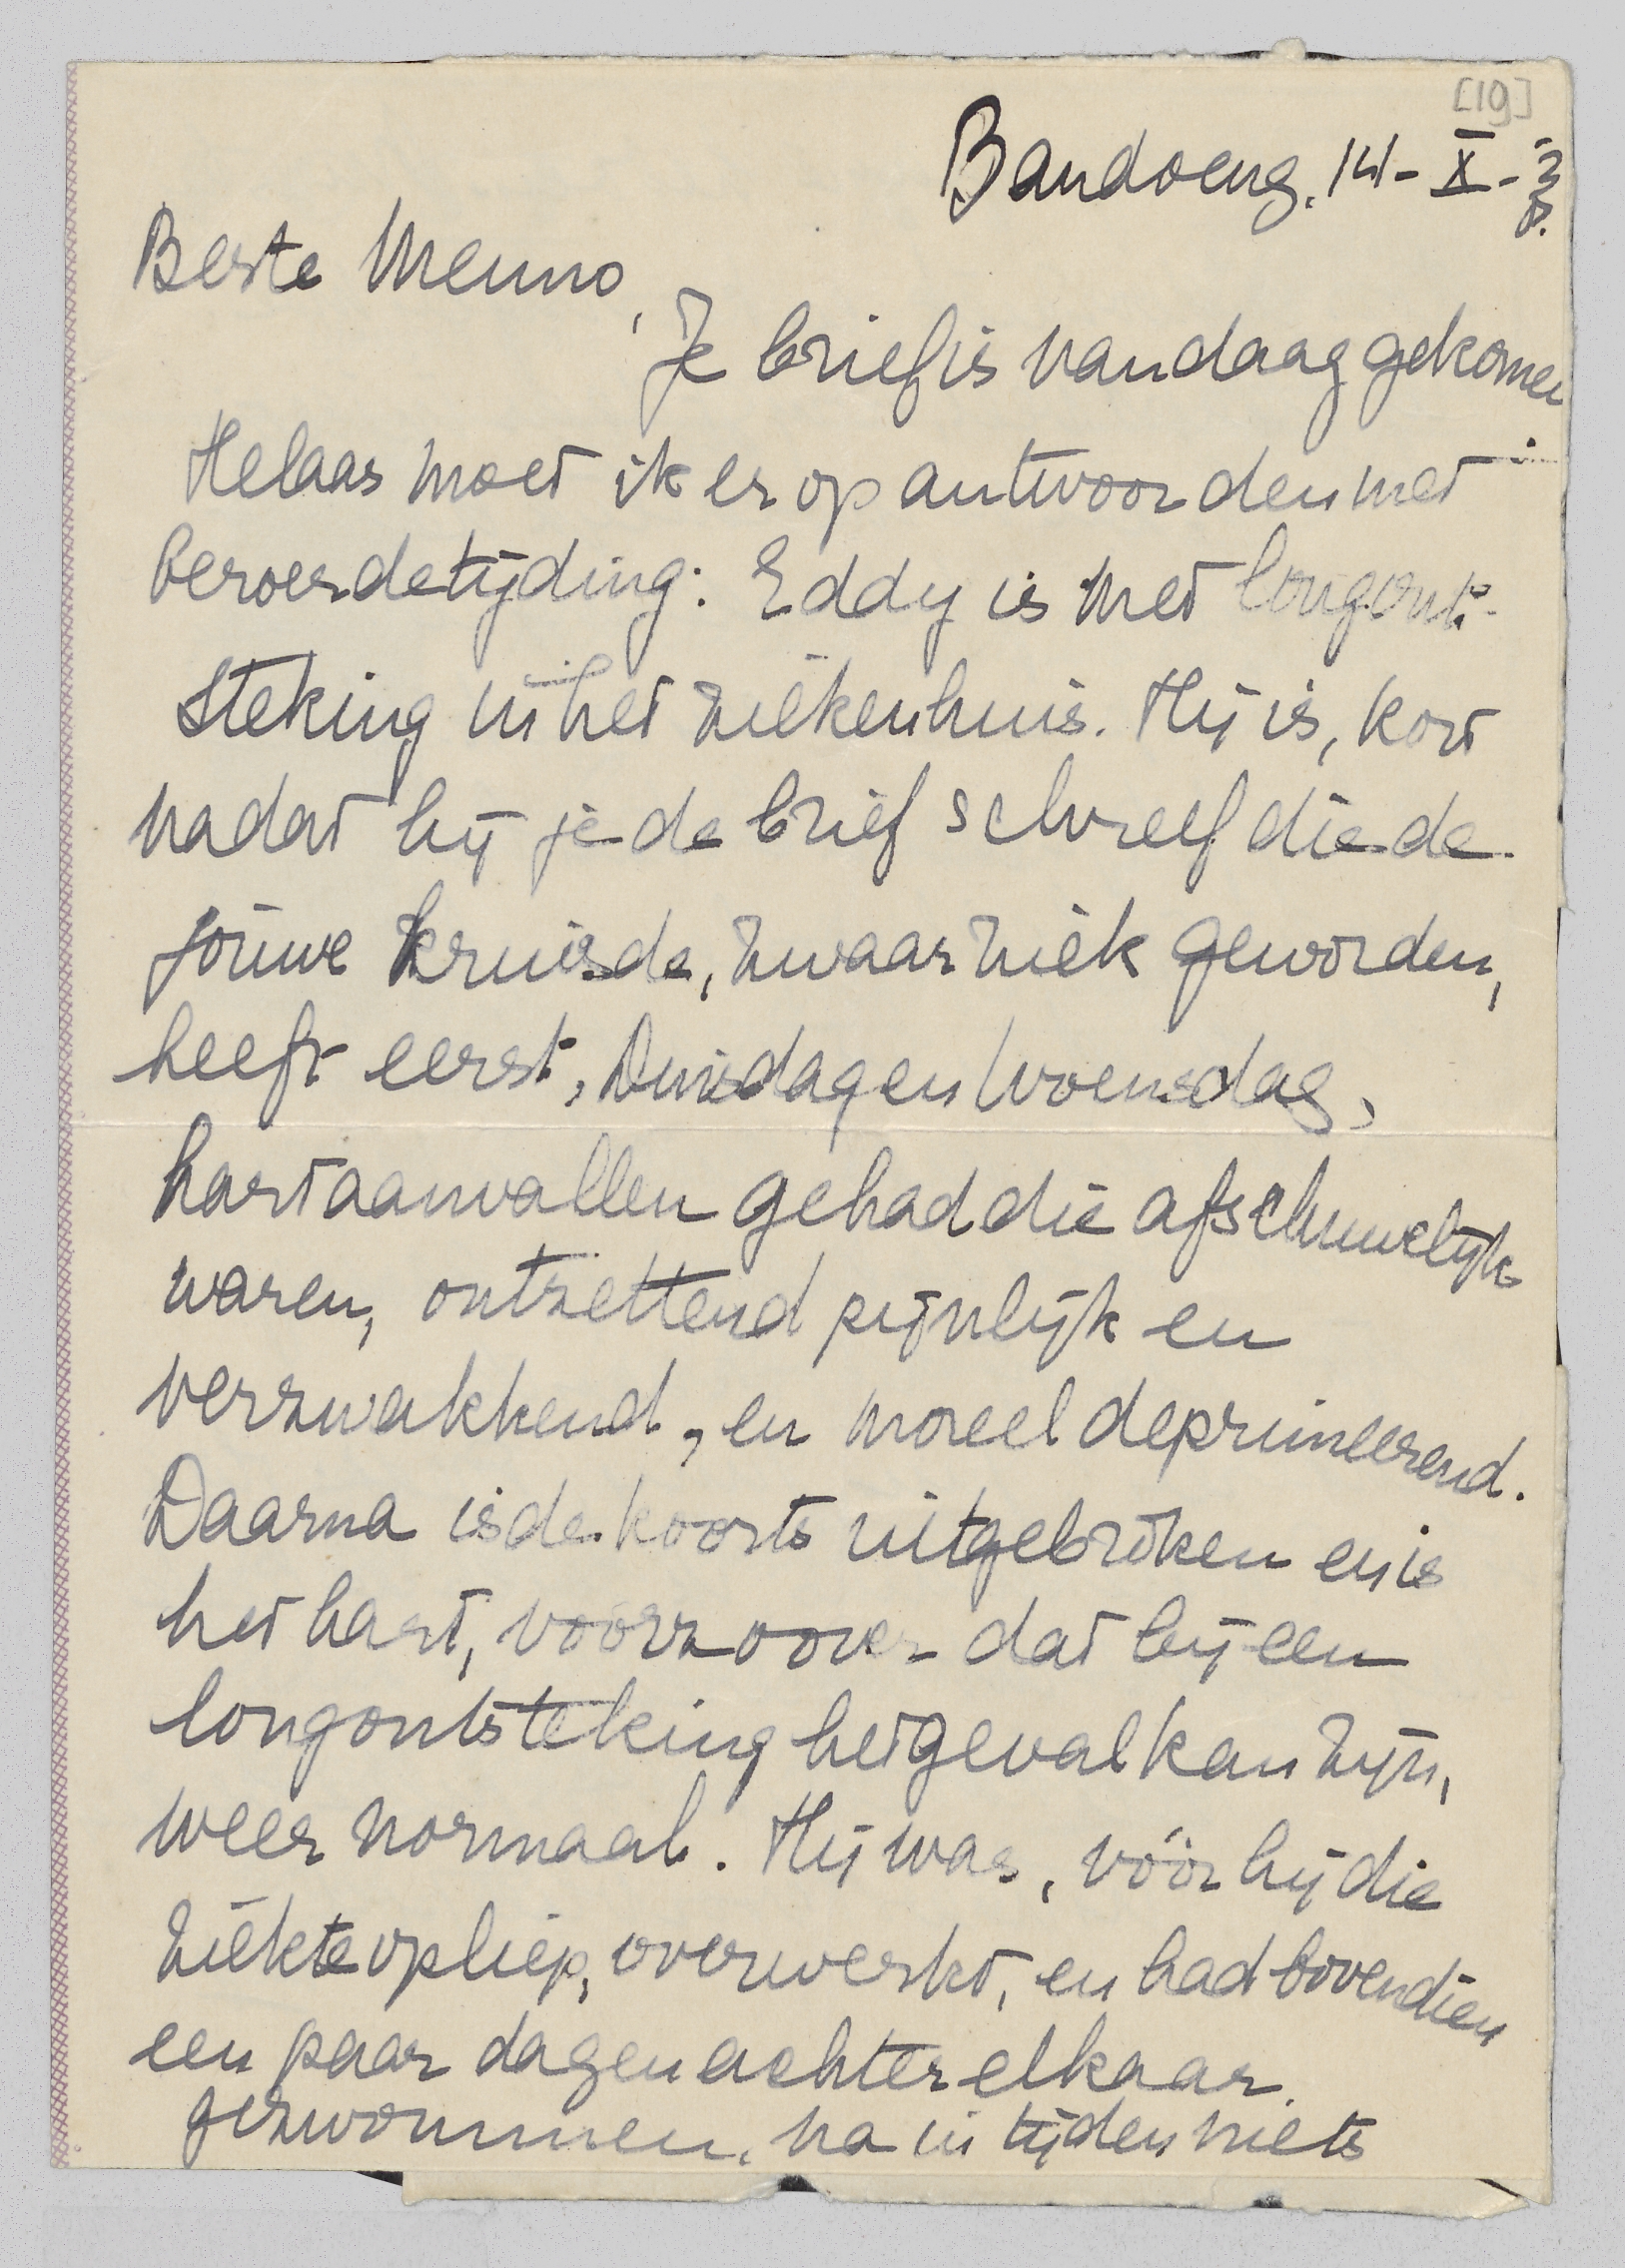 [19]
Bandoeng. 14-X-38.
Beste Menno,
Je brief is vandaag gekomen
Helaas moet ik er op antwoorden met
beroerde tijding: Eddy is met longont-
steking in het ziekenhuis. Hij is, kort
nadat hij je de brief schreef die de
jouwe kruiste, zwaar ziek geworden,
heeft eerst, Dinsdag en Woensdag,
hartaanvallen gehad die afschuwelijk
waren, ontzettend pijnlijk en
verzwakkend, en moreel deprimeerend.
Daarna is de koorts uitgebroken en is
het hart, voorzoover dat bij een
longontsteking het geval kan zijn,
weer normaal. Hij was, vóór hij die
ziekte opliep, overwerkt, en had bovendien
een paar dagen achter elkaar
gezwommen, na in tijden niets